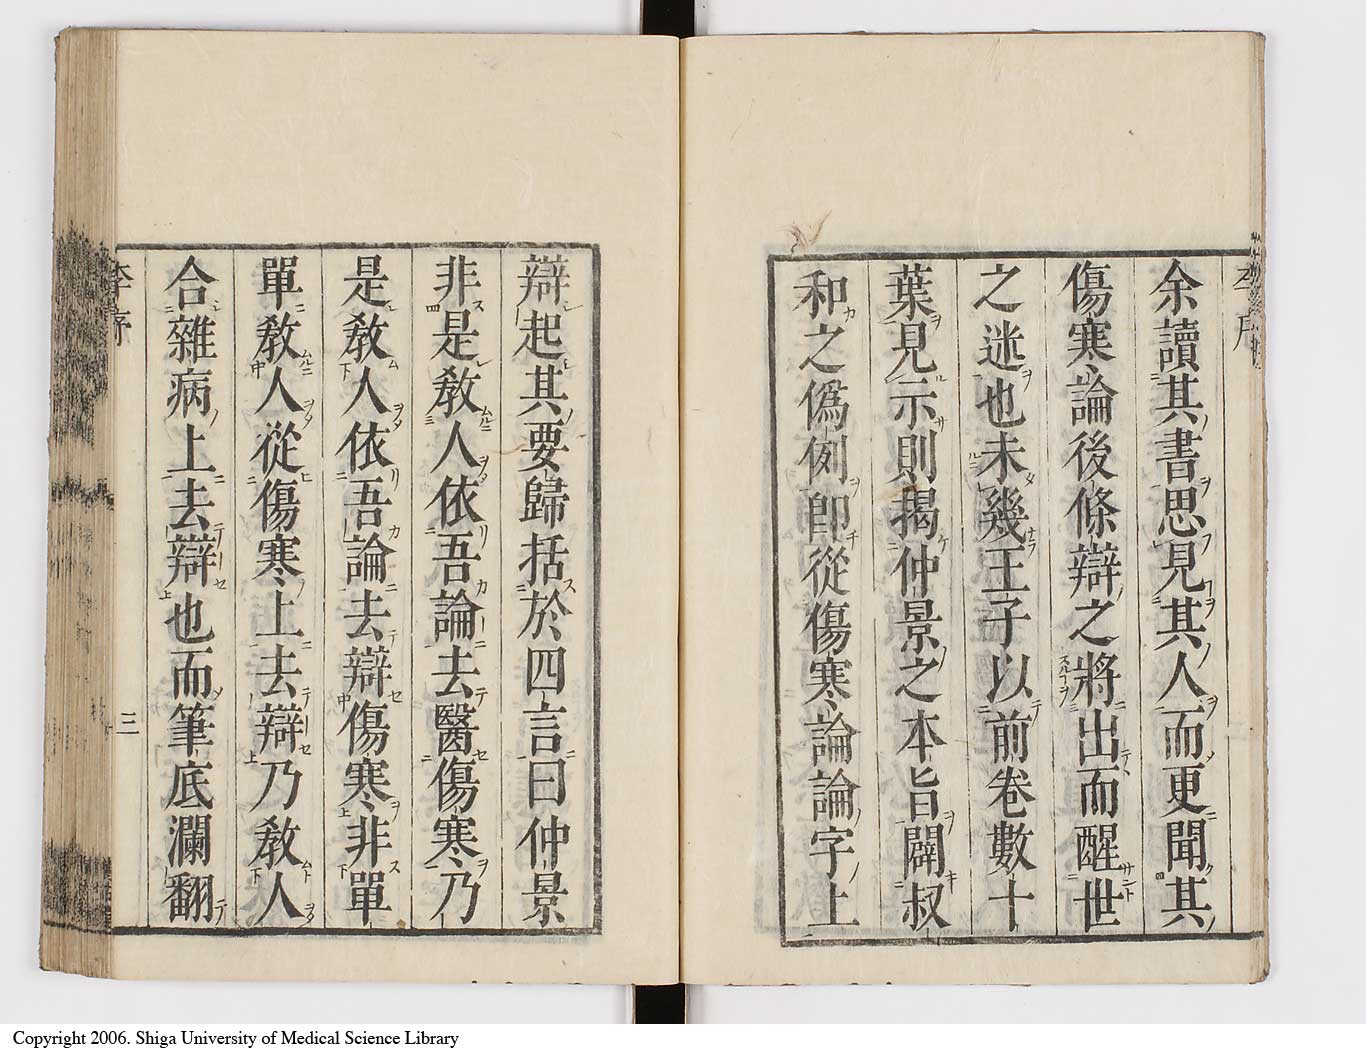 余讀其書思見其人而更聞其
傷寒論後條辯之將出而醒世
之迷也未幾王子以前卷數十
葉見示則揭仲景之本旨闢叔
和之僞例卽從傷寒論論字上
辯起其要歸括於四言曰仲景
非是教人依吾論去醫傷寒乃
是教人依吾論去辯傷寒非單
單教人從傷寒上去辯乃教人
合雜病上去辯也而筆底瀾翻
李序
三
Copyright 2006. Shiga University of Medical Science Library